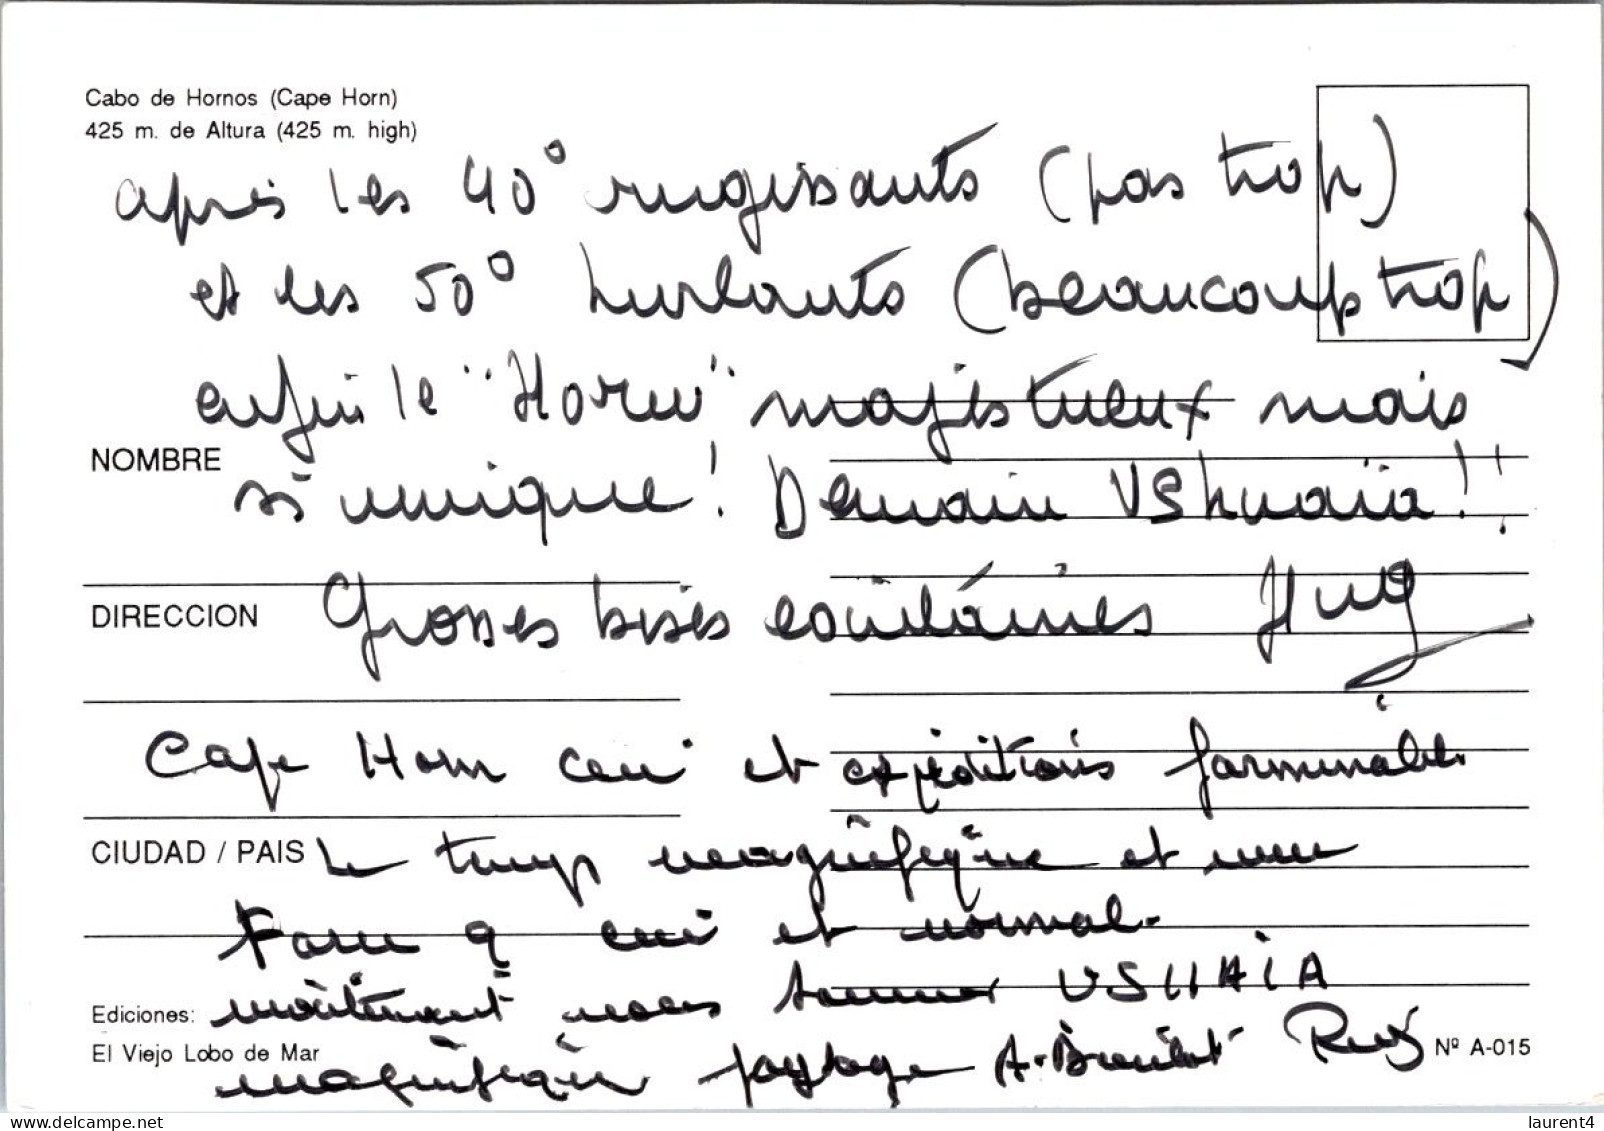 Cabo de Hornos (Cape Horn)
425 m. de Altura (425 m. high)
après les 40° rugissants (pas trop)
et les 50° hurlants (beaucoup trop)
enfin le "Horn" majestueux mais
NOMBRE
si unique ! Demain UShuaïa !!
DIRECCION
Grosses bises
Cape Horn et expéditions
CIUDAD / PAIS
le temps magnifique et
et normal.
maintenant nous sommes USHAIA
Ediciones:
El Viejo Lobo de Mar
magnifique paysage A. Bientot
Nº A-015
laurent4